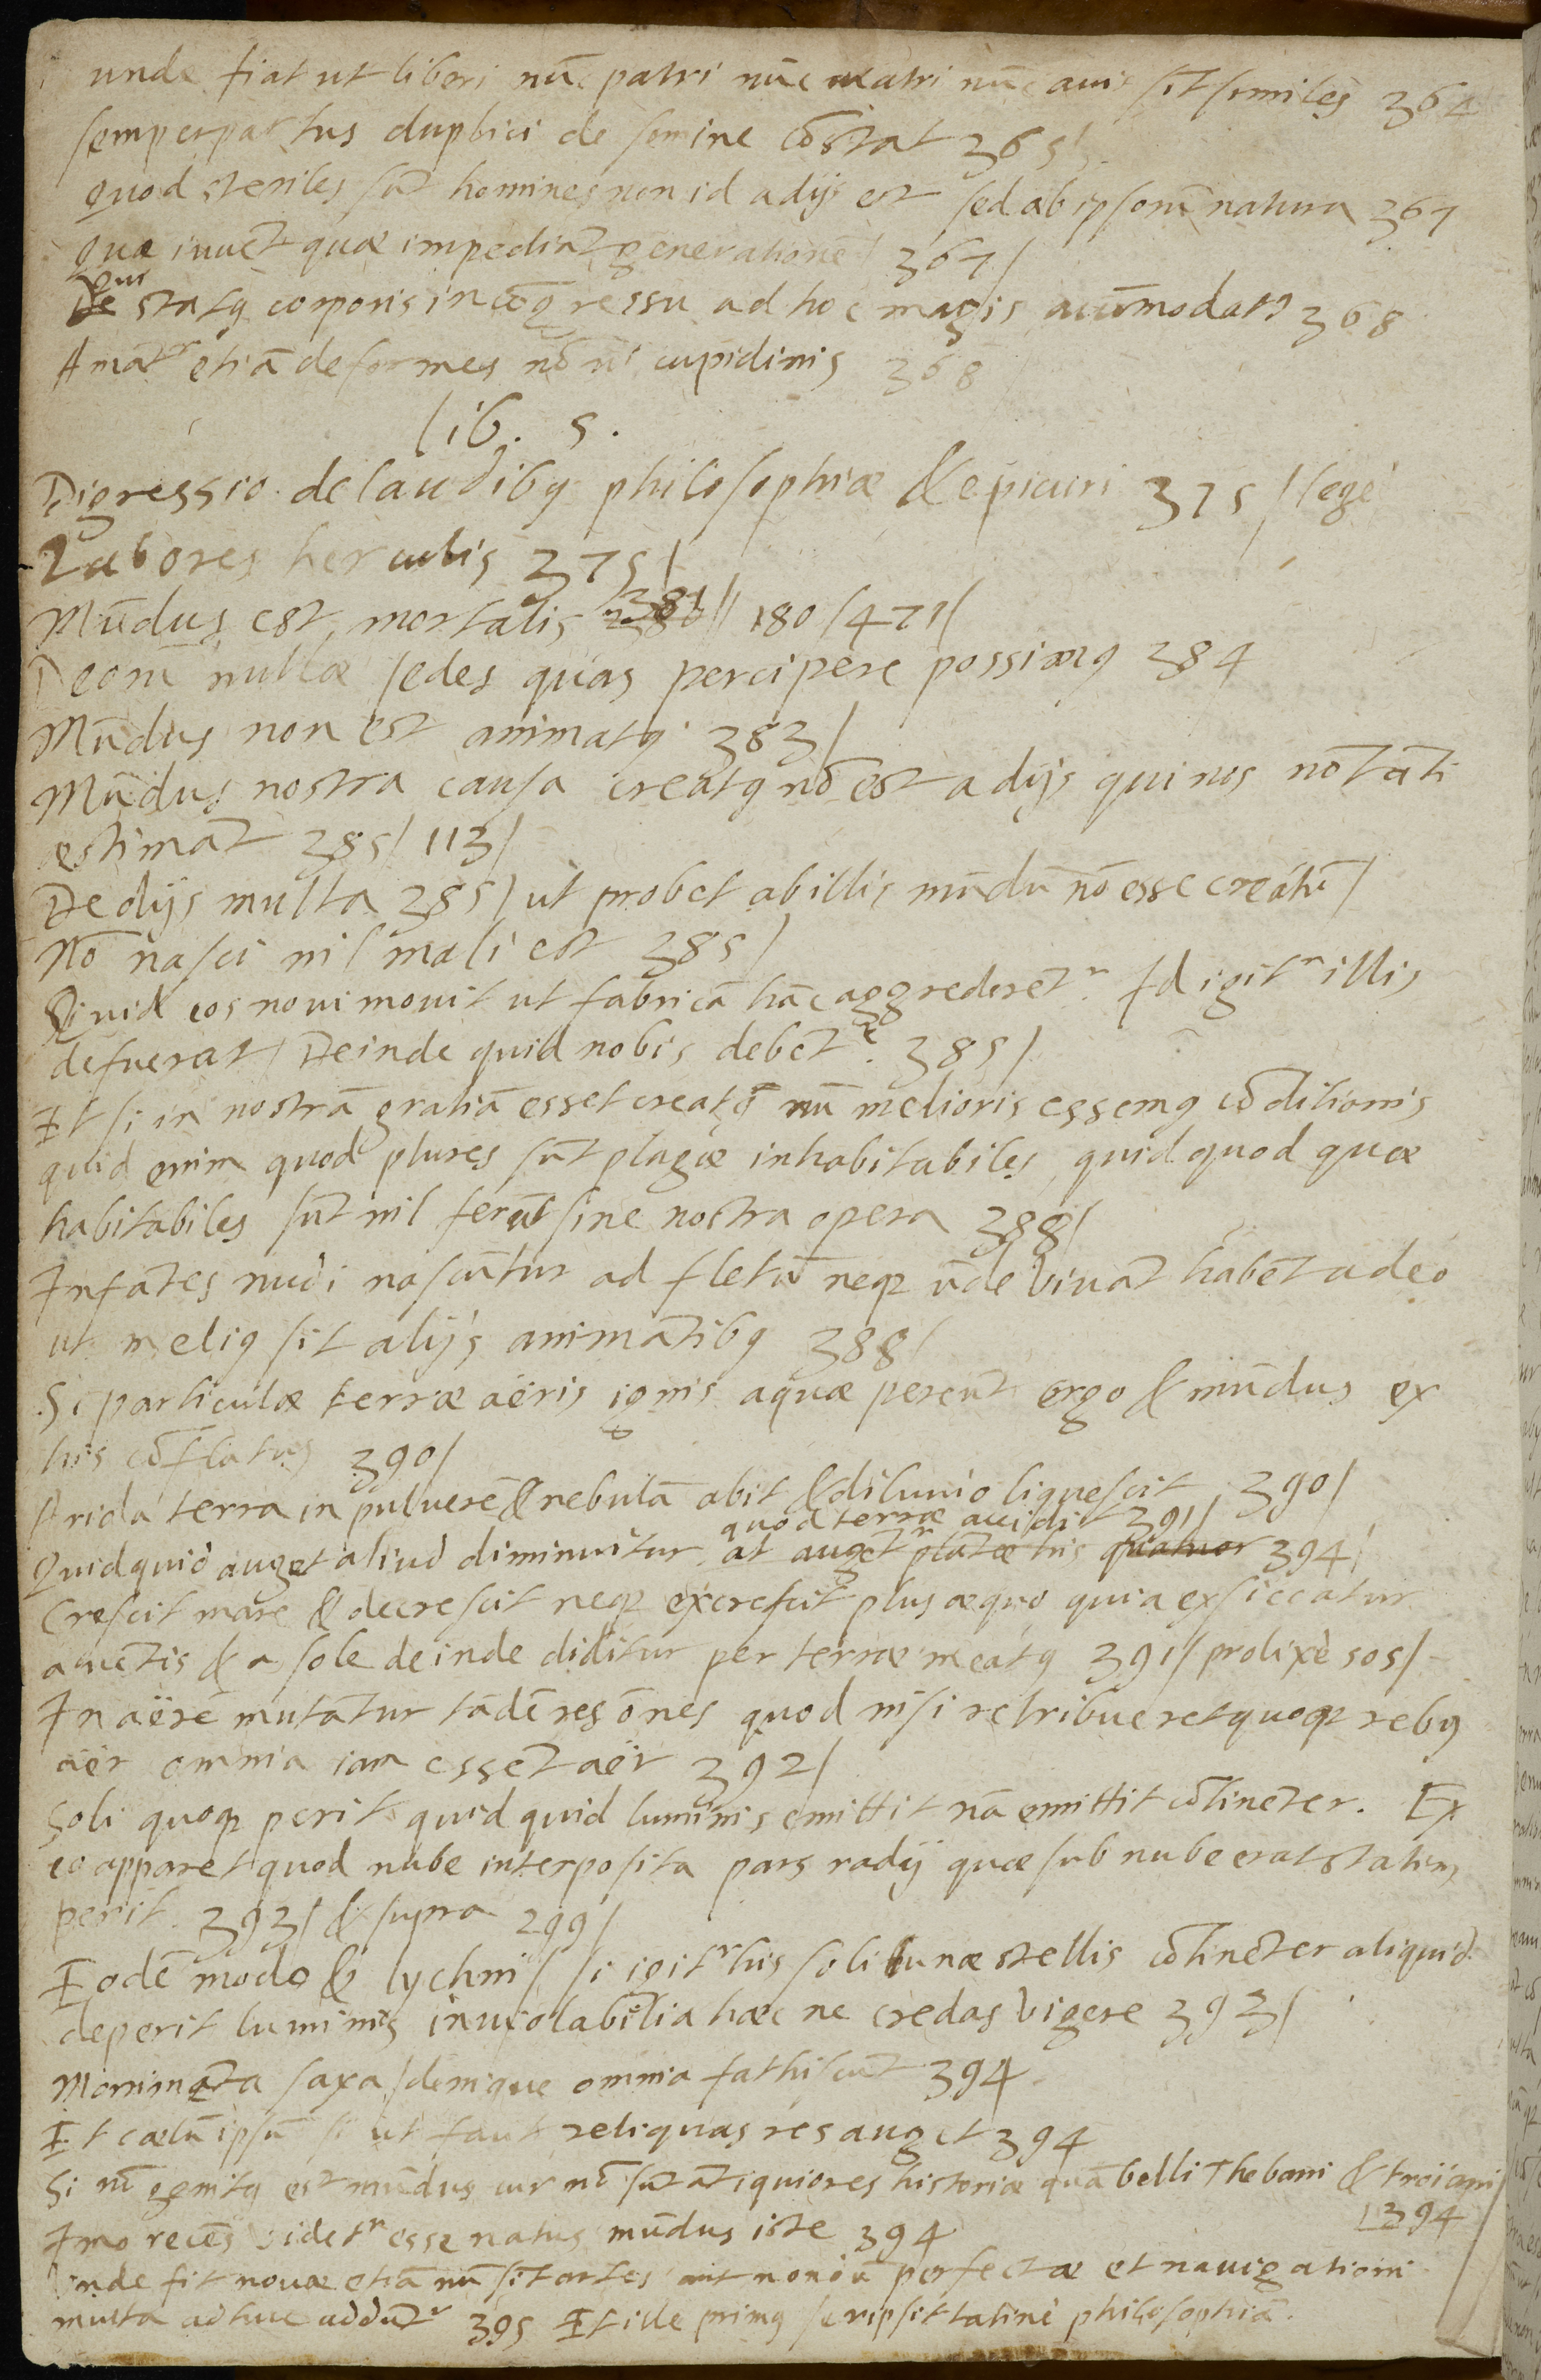 unde fiat ut liberi nūc patri nūc matri nūc auis sīt similes 364
semper partus duplici de semine cōstat 365/.
quod steriles sūt homines non id a dijs est sed ab ipsorū natura 367
Quæ iuuēt quæ impediāt generationē/ 367/
Qui statꝯ corporis in cōgressu ad hoc magis accūmodatꝯ 368
Amātʳ etiā deformes nō ui cupidinis 368
lib. 5.
Digressio de laudibꝯ philosophiæ & epicuri 375/ lege
Labores herculis 375/
Mūdus est mortalis 381// 180/471/
Deorū nullæ sedes quas percipere possimꝯ 384
Mūdus non est animatꝯ 383/
Mūdus nostra causa creatꝯ nō est a dijs qui nos nō tāti
æstimāt 385/ 113/
De dijs multa 385/ ut probet ab illis mūdū nō esse creatū/
Nō nasci nil mali est 385/
Quid eos noui mouit ut fabricā hāc aggrederētʳ. Id igitʳ illis
defuerat/ Deinde quid nobis debētʳ. 385/
Et si in nostrā gratiā esset creatꝯ nū melioris essemꝯ cōditionis
quid enim quod plures sūt plagæ inhabitabiles, quid quod quæ
habitabiles sūt nil ferūt sine nostra opera 388/
Infātes nudi nascūtur ad fletū neqꝫ ūde viuāt habēt adeo
ut meliꝯ sit alijs animātibꝯ 388/
Si particulæ terræ aëris ignis aquæ pereūt ergo & mūdus ex
his cōflatus 390/
Arida terra in puluerē & nebulā abit & diluuio liquescit 390/
quod terræ accidit 391/
Quidquid auget aliud diminuitur at augētʳ plātæ his quatuor 394/
Crescit mare & decrescit neqꝫ excrescit plus æquo quia exsiccatur
a uētis & a sole deinde diditur per terræ meatꝯ 391/ prolixè 505/
In aërē mutātur tādē res ōnes quod nisi retribueret quoqꝫ rebꝯ
aër omnia iam essēt aër 392/
Soli quoqꝫ perit quidquid luminis emittit nā emittit cōtinēter. Ex
eo apparet quod nube interposita pars radij quæ sub nube erat statim
perit. 393/ & supra 299/
Eodē modo & lychni/ si igitʳ his soli lunæ stellis cōtinēter aliquid
deperit luminis inuiolabilia hæc ne credas vigere 393/
Monimēta saxa/ denique omnia fathiscūt 394
Et cælū ipsū si ut faut reliquas res auget 394
Si nō genitꝯ est mūdus cur nō sūt ātiquiores historiæ quā belli Thebani & troiani/
394
Imo recēs videtʳ esse natus mūdus iste 394
Unde fit nouæ etiā nū sīt artes aut nondū perfectæ et nauigationi
multa adhuc addūtʳ 395 Et ille primꝯ scripsit latinè philosophiā.